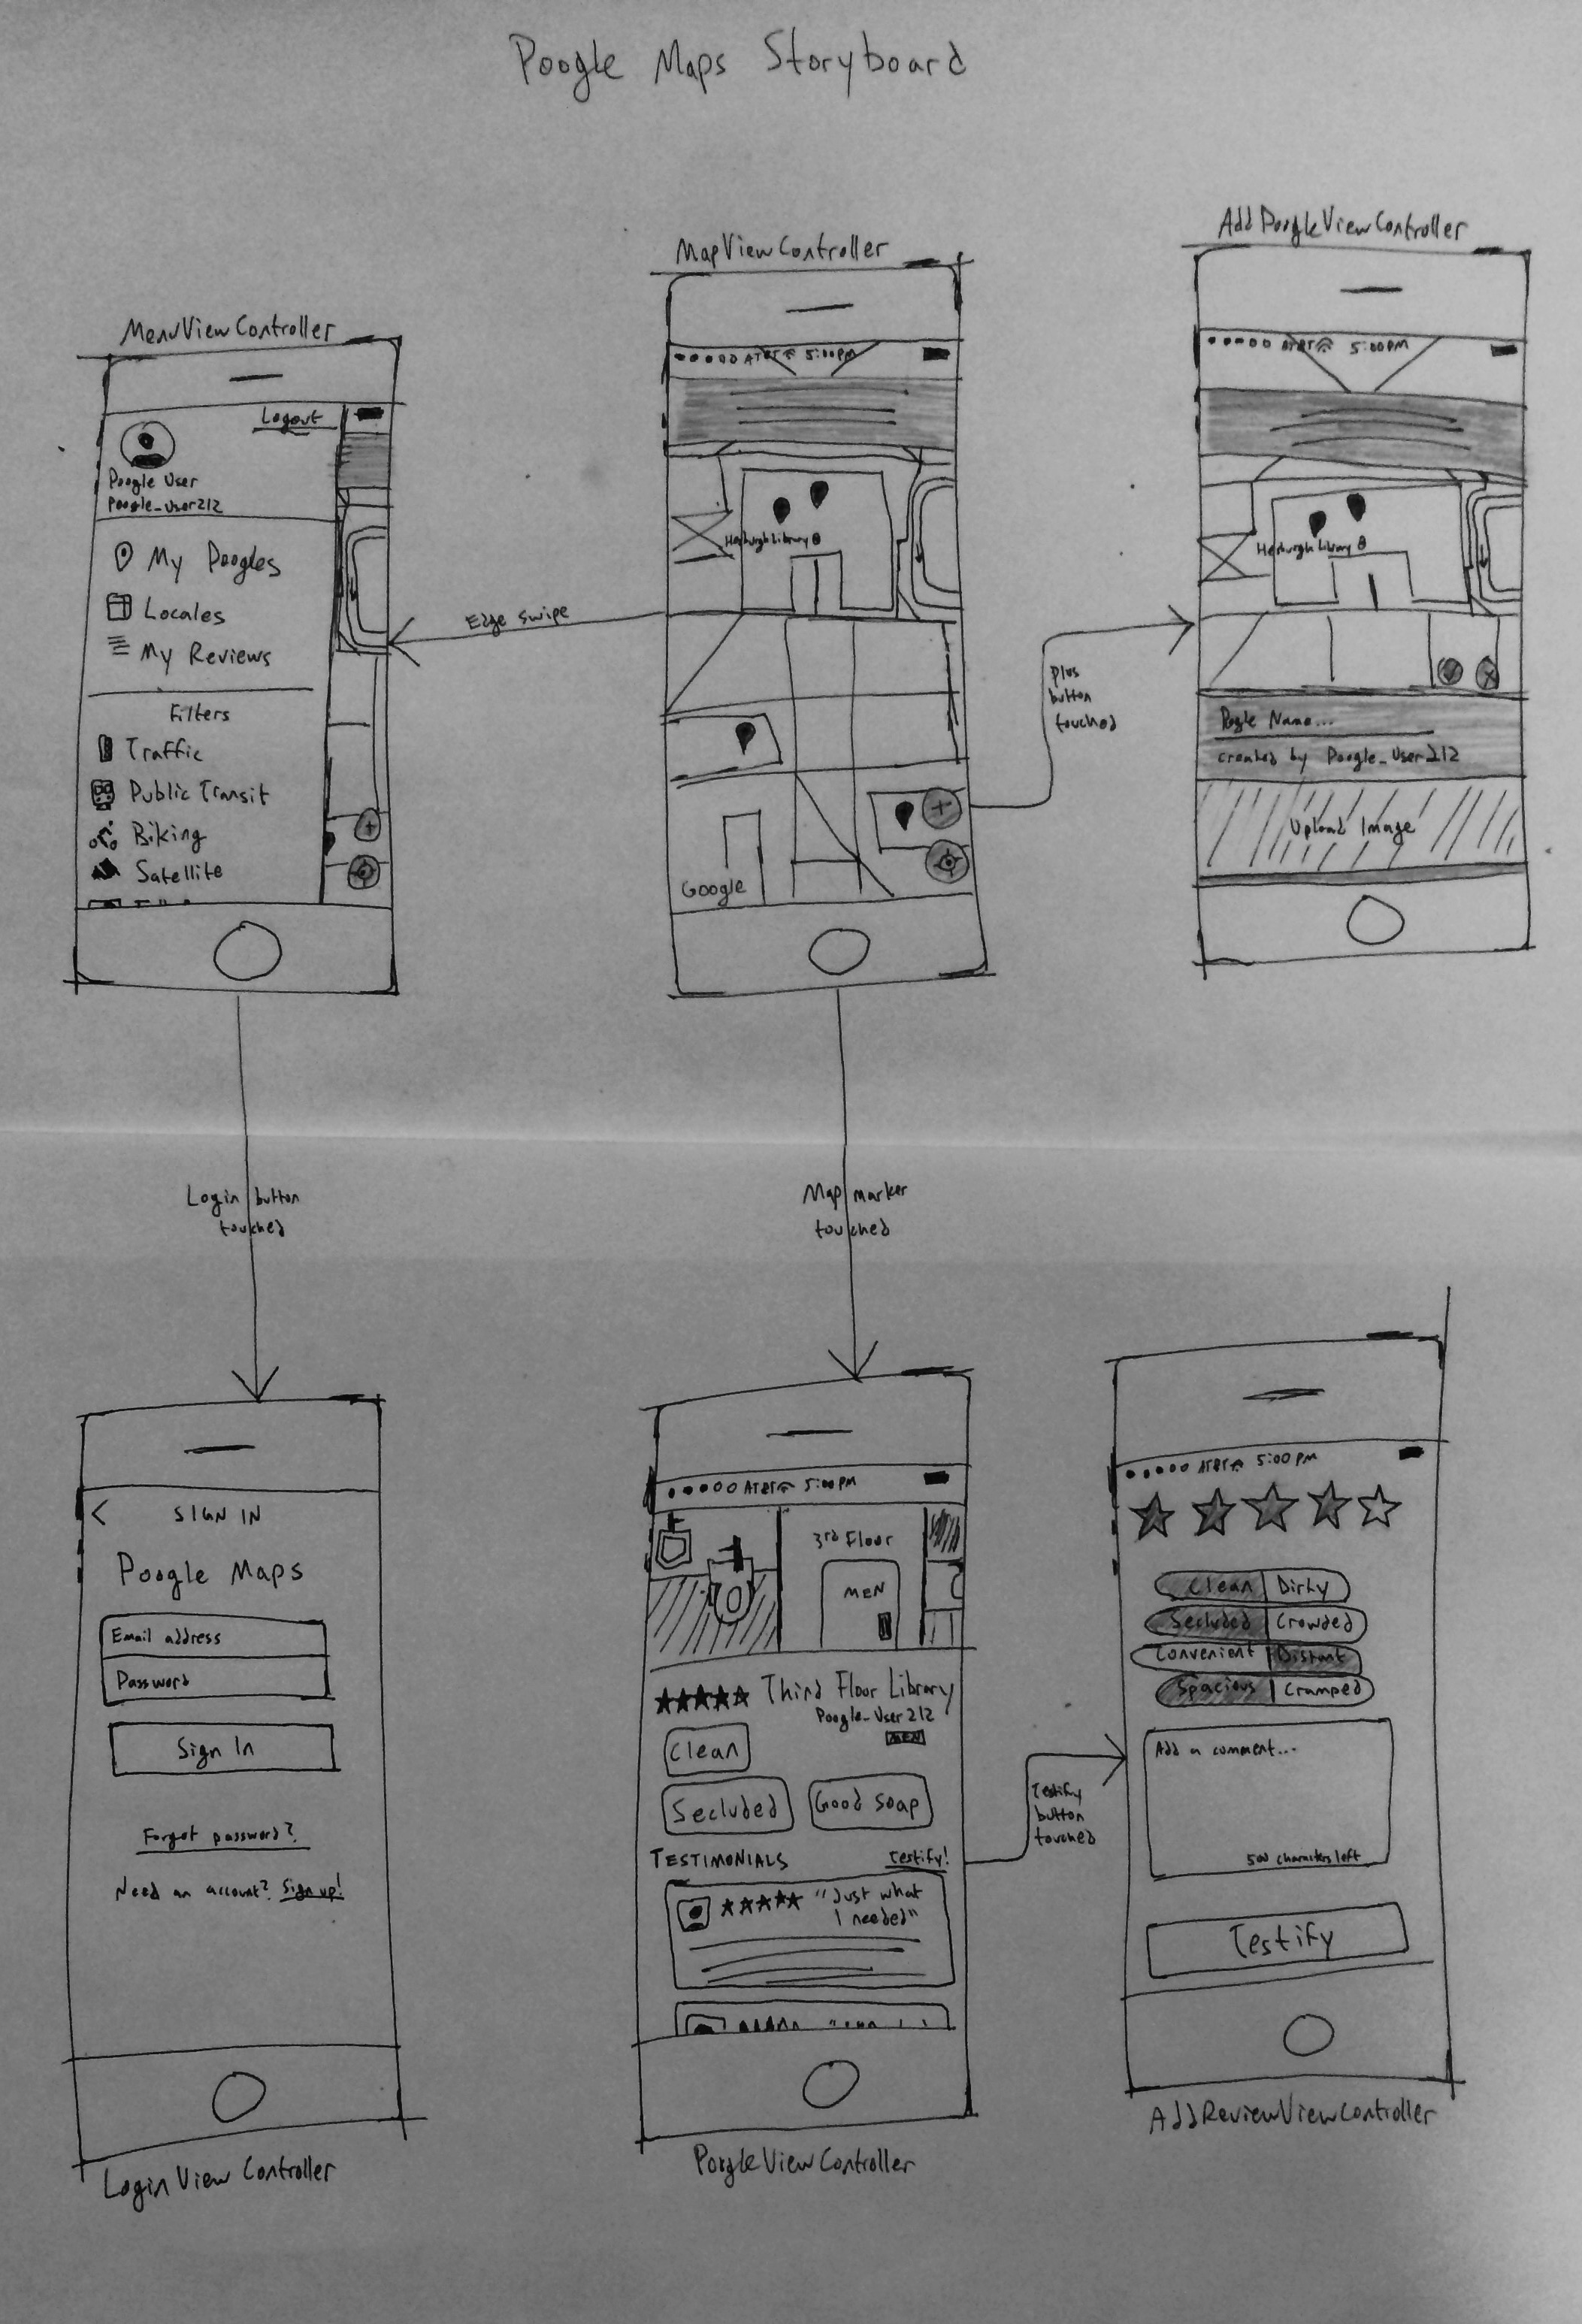 Poogle Maps Storyboard
MenuViewController
Logout
Poogle User
Poogle_User212
My Poogles
Locales
My Reviews
Filters
Traffic
Public Transit
Biking
Satellite
Edge swipe
MapViewController
AT&T 5:00PM
Hesburgh Library
Google
plus
button
touched
AddPoogleViewController
AT&T 5:00PM
Hesburgh Library
Poogle Name...
created by Poogle_User212
Upload Image
Login button
touched
Map marker
touched
<
SIGN IN
Poogle Maps
Email address
Password
Sign In
Forgot password?
Need an account? Sign up!
LoginViewController
AT&T 5:00PM
3rd Floor
MEN
Third Floor Library
Poogle_User212
MEN
Clean
Secluded
Good soap
TESTIMONIALS
Testify!
"Just what
I needed"
PoogleViewController
Testify
button
touched
AT&T 5:00PM
Clean Dirty
Secluded Crowded
Convenient Distant
Spacious Cramped
Add a comment...
500 characters left
Testify
AddReviewViewController